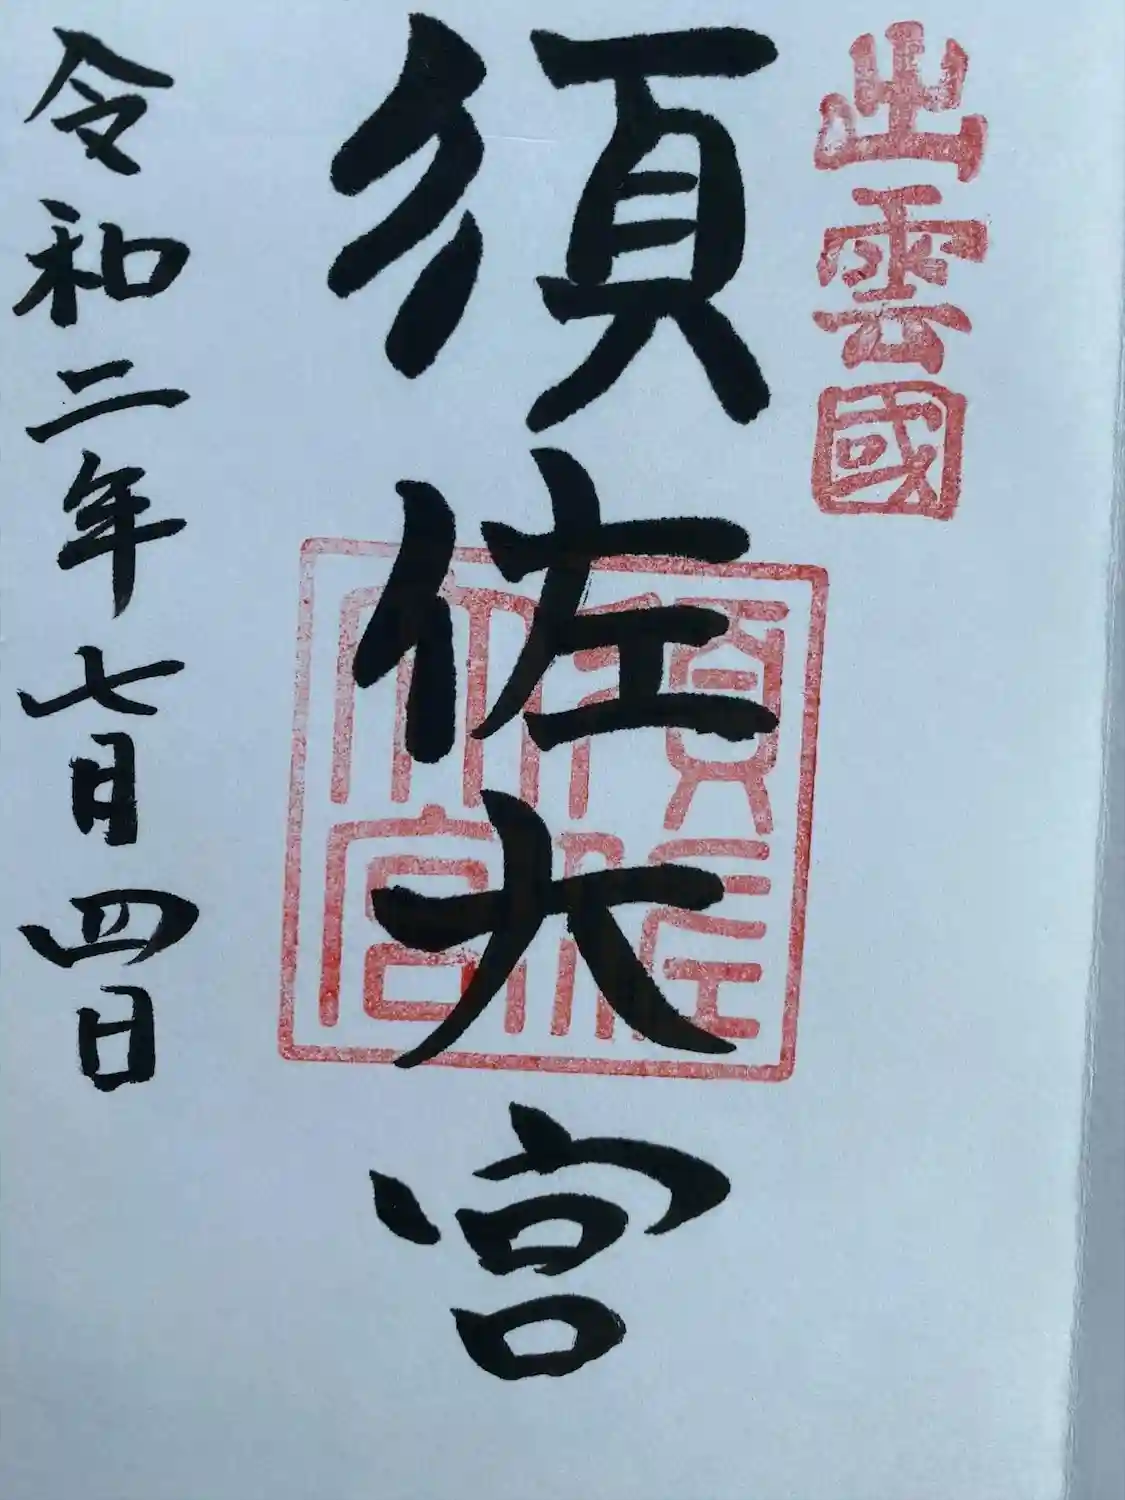 出雲國
須佐大宮
須佐
大宮
令和二年七月四日